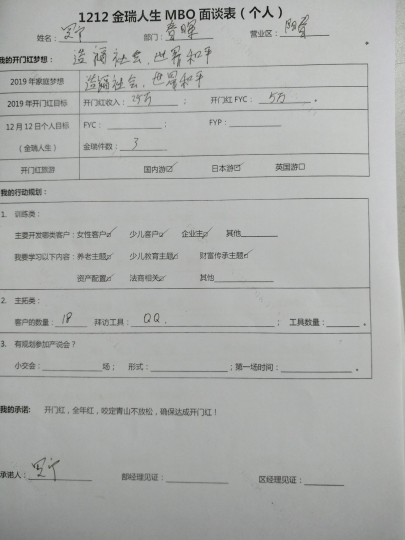 1212金瑞人生MBO面谈表（个人）
姓名： 部门： 营业区：
我的开门红梦想： 造福社会，世界和平
2019年家庭梦想 造福社会，世界和平
2019年开门红目标 开门红收入：25万； 开门红FYC：5万。
12月12日个人目标 FYC：； FYP：
（金瑞人生） 金瑞件数：3
开门红旅游 国内游☑ 日本游☑ 英国游□
我的行动规划：
1. 训练类：
主要开发哪类客户：女性客户☑ 少儿客户☑ 企业主☑ 其他
我要学习以下内容：养老主题☑ 少儿教育主题☑ 财富传承主题☑
资产配置☑ 法商相关☑ 其他
2. 主拓类：
客户的数量：18 拜访工具：QQ.； 工具数量：。
3. 有规划参加产说会？
小交会：场； 形式：；第一场时间：。
我的承诺： 开门红，全年红，咬定青山不放松，确保达成开门红！
承诺人： 部经理见证： 区经理见证：